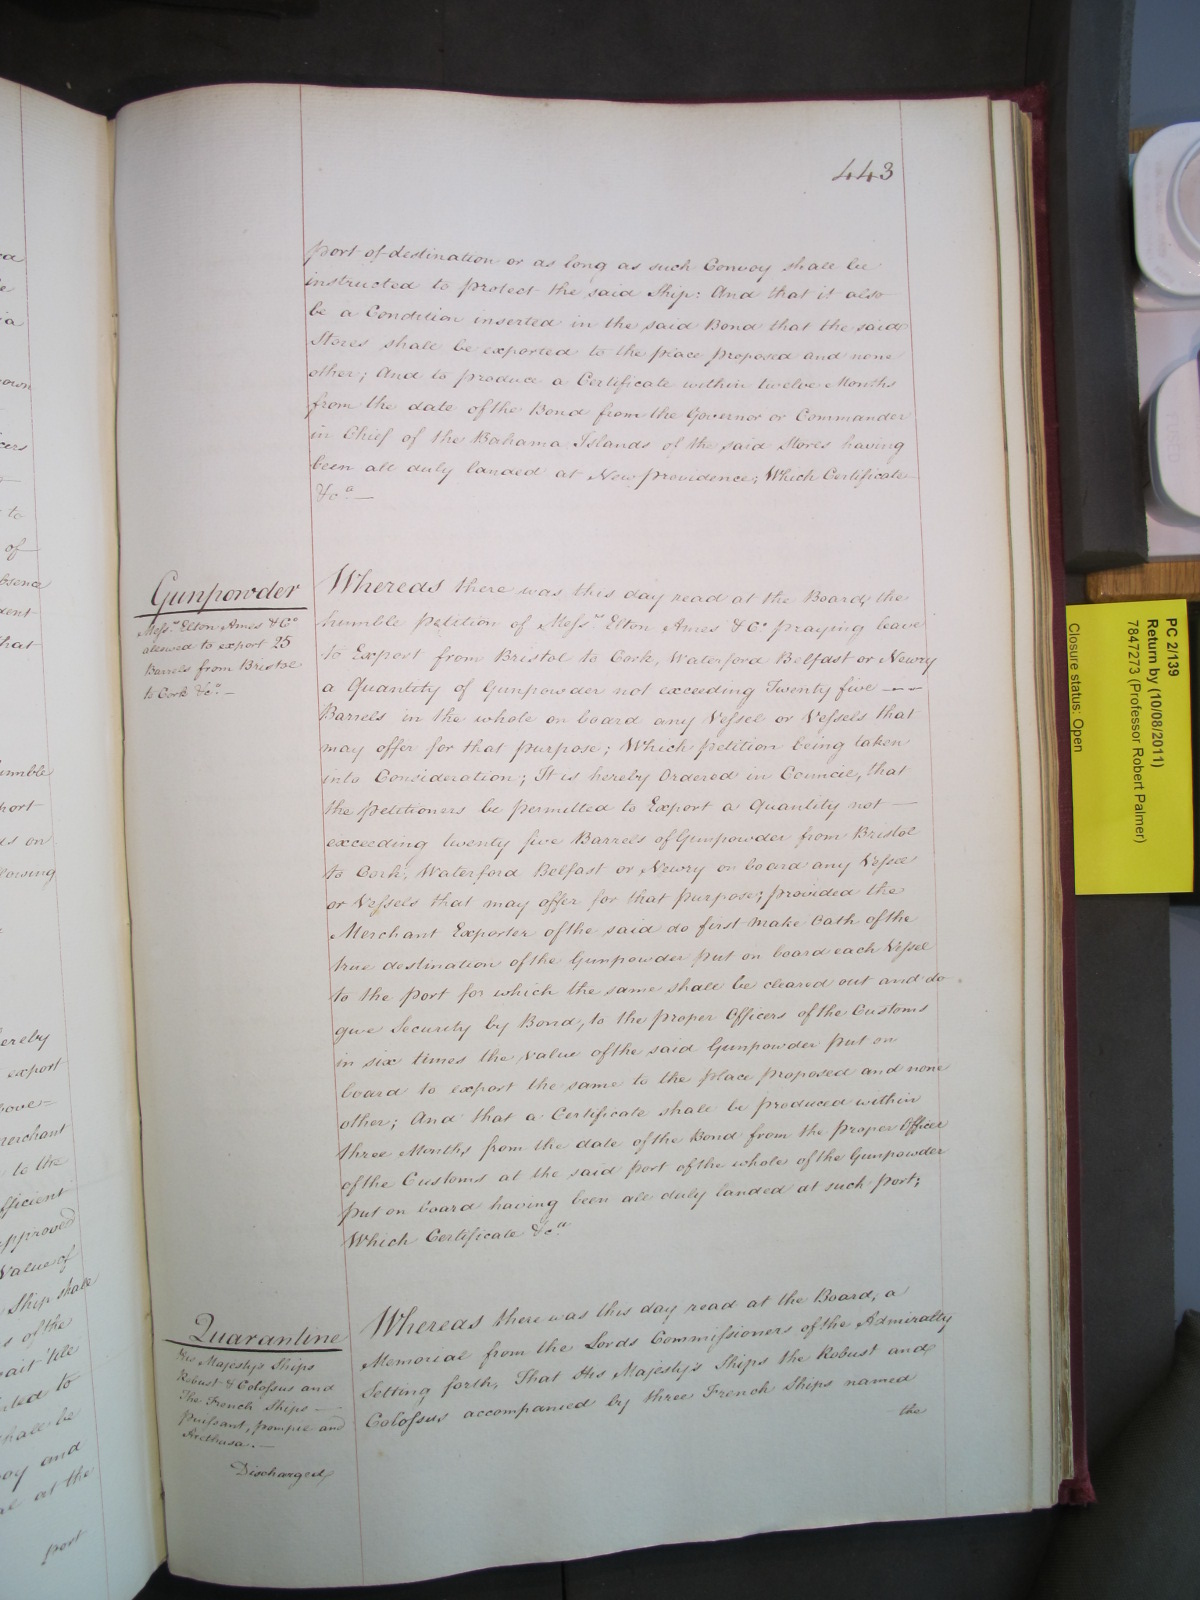 443
port of destination or as long as such Convoy shall be
instructed to protect the said Ship: And that it also
be a Condition inserted in the said Bond that the said
Stores shall be exported to the place proposed and none
other; And to produce a Certificate within twelve Months
from the date of the Bond from the Governor or Commander
in Chief of the Bahama Islands of the said Stores having
been all duly landed at New providence; Which Certificate
&ca.—
Gunpowder
Messrs Elton Ames & Co
allowed to export 25
Barrels from Bristol
to Cork &ca.—
Whereas there was this day read at the Board, the
humble petition of Messrs Elton Ames & Co praying leave
to Export from Bristol to Cork, Waterford Belfast or Newry
a Quantity of Gunpowder not exceeding Twenty five — —
Barrels in the whole on board any Vessel or Vessels that
may offer for that purpose; Which petition being taken
into Consideration; It is hereby Ordered in Council, that
the petitioners be permitted to Export a Quantity not —
exceeding twenty five Barrels of Gunpowder from Bristol
to Cork, Waterford Belfast or Newry on board any Vessel
or Vessels that may offer for that purpose; provided the
Merchant Exporter of the said do first make Oath of the
true destination of the Gunpowder put on board each Vessel
to the port for which the same shall be cleared out and do
give Security by Bond, to the proper Officers of the Customs
in six times the value of the said Gunpowder put on
board to export the same to the place proposed and none
other; And that a Certificate shall be produced within
three Months from the date of the Bond from the proper Officer
of the Customs at the said port of the whole of the Gunpowder
put on board having been all duly landed at such port;
Which Certificate &ca.
Quarantine
His Majesty's Ships
Robust & Colossus and
The French Ships —
Puissant, pompée and
Arethusa.—
Discharged
Whereas there was this day read at the Board, a
Memorial from the Lords Commissioners of the Admiralty
Setting forth, That His Majesty's Ships the Robust and
Colossus accompanied by three French Ships named
the
PC 2/139
Return by (10/08/2011)
7847273 (Professor Robert Palmer)
Closure status: Open
own
to
of
that
umble
port
ds on
llowing
hereby
export
bove=
Merchant
to the
fficient
approved
Value of
Ship shall
s of the
shall be
and
at the
port